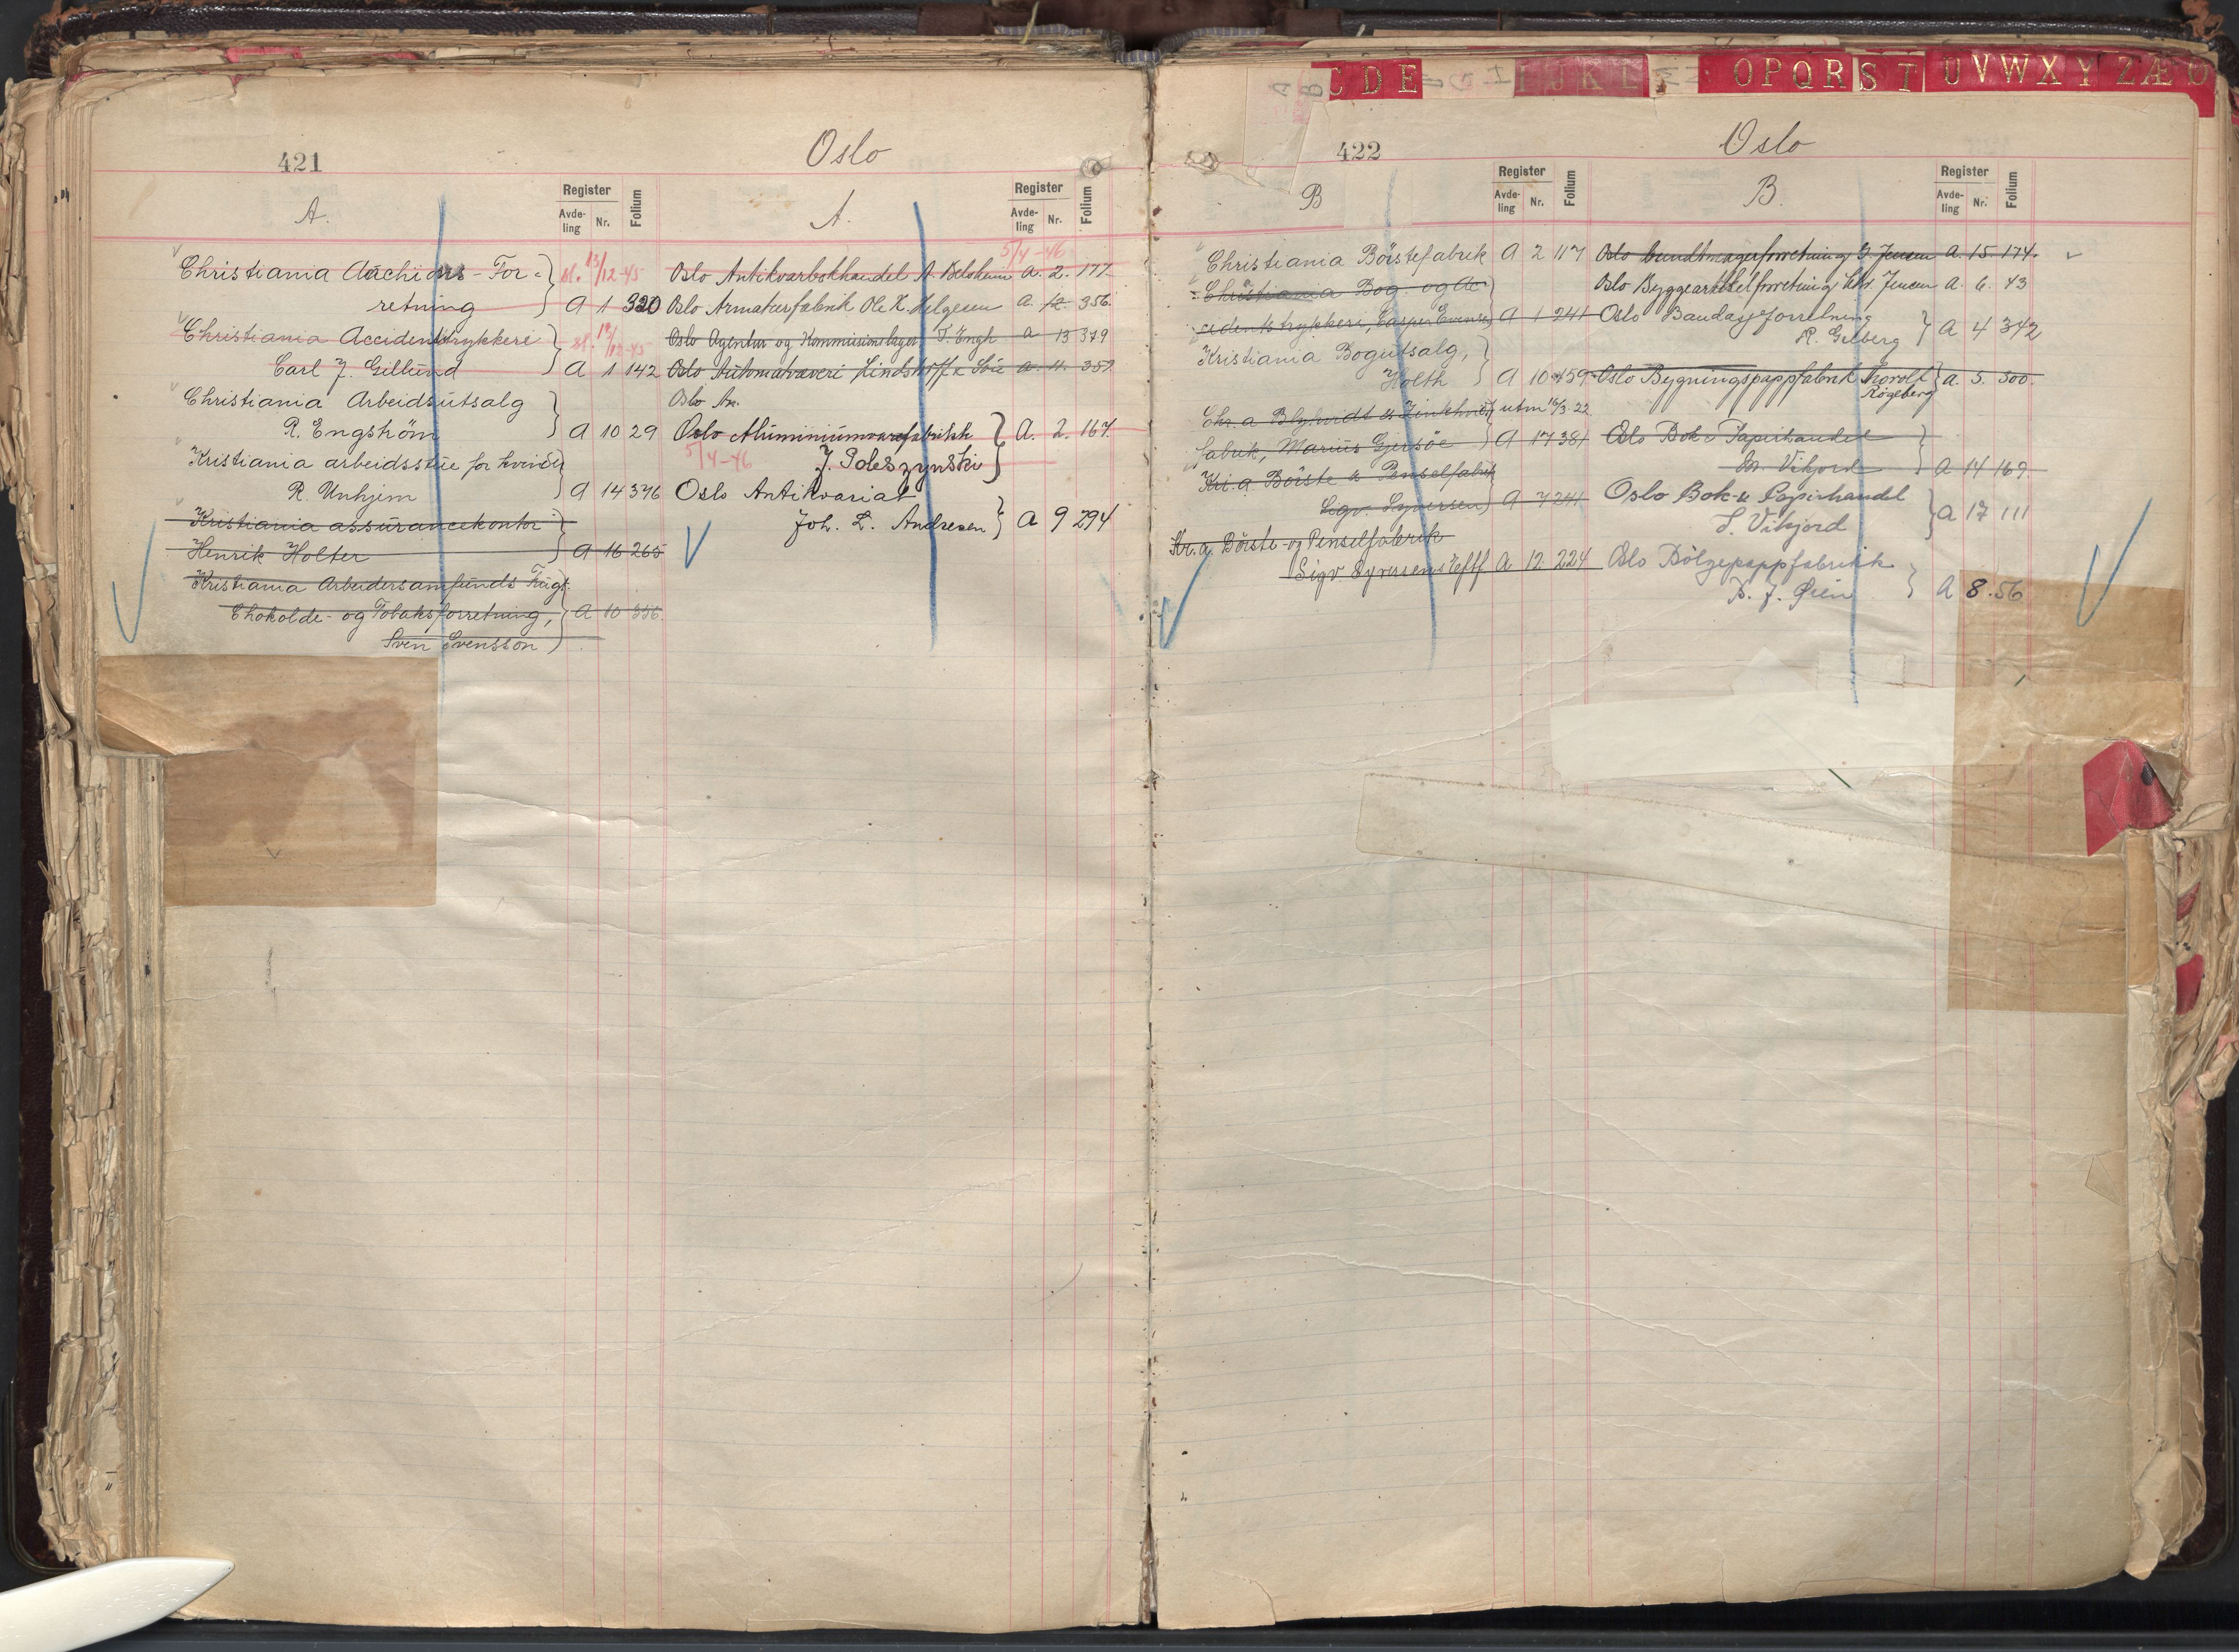 C D E I J K L O P Q R S T U V W X Y Z Æ Ø
421
Oslo
A.
Register
Avde-
ling
Nr.
Folium
A.
Register
Avde-
ling
Nr.
Folium
Christiania Auchions-For-
retning A 1 320
sl. 13/12-45
Christiania Accidenstrykkeri
Carl J. Gillund A 1 142
sl. 12-45
Christiania Arbeidsutsalg
R. Engström A 10 29
Kristiania arbeidsstue for kvinder
R. Unhjem A 14 376
Kristiania assurancekontor
Henrik Holter A 16 265
Kristiania Arbeidersamfunds Frugt
Chokolde- og Tobaksforretning, A 10 356.
Sven Svensson
5/4-46
Oslo Antikvarbokhandel A. Belsheim A. 2. 177.
Oslo Armaturfabrik Ole K. Helgesen A. 12. 356.
Oslo Agentur og Kommisionslager T. Engh A 13 379
Oslo Automatvæveri Lindstoff & Söie A. 11. 359.
Oslo An.
Oslo Aluminiumvarefabrikk A. 2. 167.
5/4-46 J. Poleszynski
Oslo Antikvariat
Joh. L. Andresen A 9 294
422
Oslo
B
Register
Avde-
ling
Nr.
Folium
B.
Register
Avde-
ling
Nr.
Folium
Christiania Börstefabrik A 2 117
Christiania Bog- og Ac-
cidentstrykkeri, Casper Evensen A 1 241
Kristiania Bogutsalg,
Holth A 10 459
Chr.a Blyhvidt & Zinkhvidt utm 16/3.22
fabrik, Marius Gjersöe A 17 381
Kr.a Börste & Penselfabrik
Sigv. Syversen A 7 241
Kr.a. Börste- og Penselfabrik
Sigv. Syversens Eftf. A. 12. 224
Oslo bundtmagerforretning G. Jensen A. 15. 174.
Oslo Byggeartikkelforretning Chr. Jensen A. 6. 43
Oslo Bandasjeforretning
R. Gilberg A 4 342
Oslo Bygningspappfabrik Thorolf A. 5. 300.
Rögeberg
Oslo Bok & Papirhandel
M. Vikjord A 14 169
Oslo Bok- & Papirhandel
S. Vikjord A 17 111
Oslo Bölgepappfabrikk
B. J. Øien A 8.56